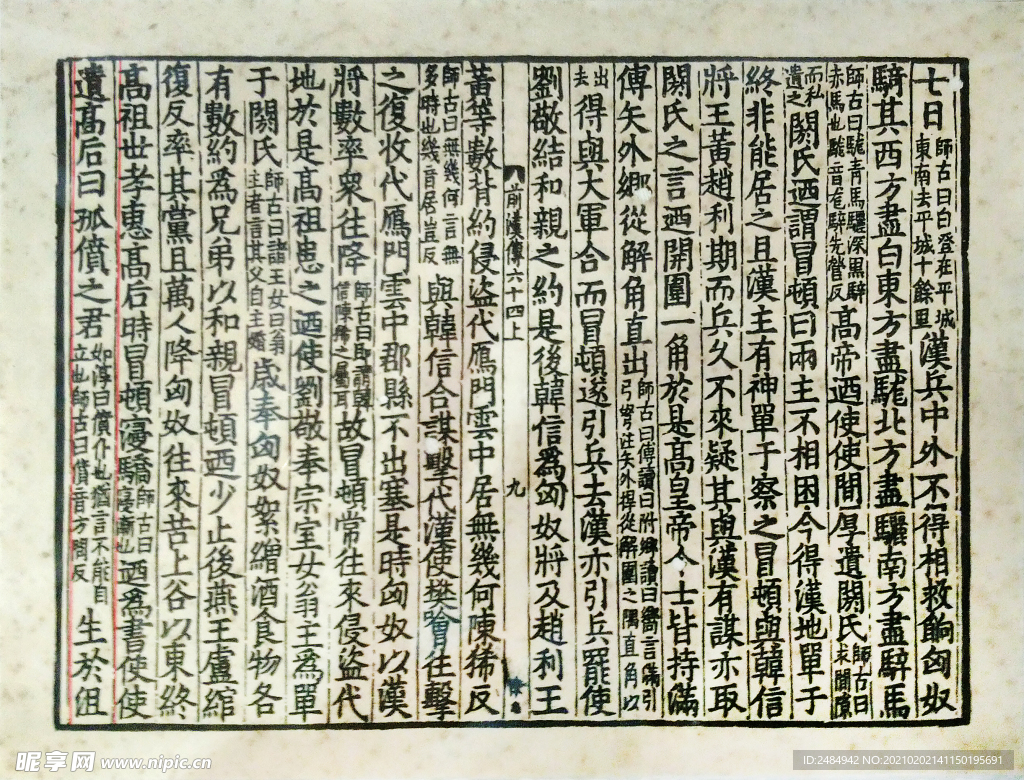 七日師古曰白登在平城東南去平城十餘里漢兵中外不得相救餉匈奴
騎其西方盡白東方盡駹北方盡驪南方盡騂馬
師古曰駹青馬驪深黑騂赤馬也駹音尨騂先營反高帝迺使使間厚遺閼氏師古曰求間隙
而私遺之閼氏迺謂冒頓曰兩主不相困今得漢地單于
終非能居之且漢主有神單于察之冒頓與韓信
將王黃趙利期而兵久不來疑其與漢有謀亦取
閼氏之言迺開圍一角於是高皇帝令士皆持滿
傅矢外鄉從解角直出師古曰傅讀曰附鄉讀曰嚮言滿引弓弩注矢外捍從解圍之隅直角以
出去得與大軍合而冒頓遂引兵去漢亦引兵罷使
劉敬結和親之約是後韓信爲匈奴將及趙利王
前漢傳六十四上
九
黃等數背約侵盜代鴈門雲中居無幾何陳豨反
師古曰無幾何言無多時也幾音居豈反與韓信合謀擊代漢使樊噲往擊
之復收代鴈門雲中郡縣不出塞是時匈奴以漢
將數率衆往降師古曰即謂韓信陳豨之屬耳故冒頓常往來侵盜代
地於是高祖患之迺使劉敬奉宗室女翁主爲單
于閼氏師古曰諸王女曰翁主者言其父自主婚歲奉匈奴絮繒酒食物各
有數約爲兄弟以和親冒頓迺少止後燕王盧綰
復反率其黨且萬人降匈奴往來苦上谷以東終
高祖世孝惠高后時冒頓寖驕師古曰寖漸也迺爲書使使
遺高后曰孤僨之君如淳曰僨介也猶言不能自立也師古曰僨音方問反生於沮
昵享网 www.nipic.cn
ID:2484942 NO:20210202141150195691